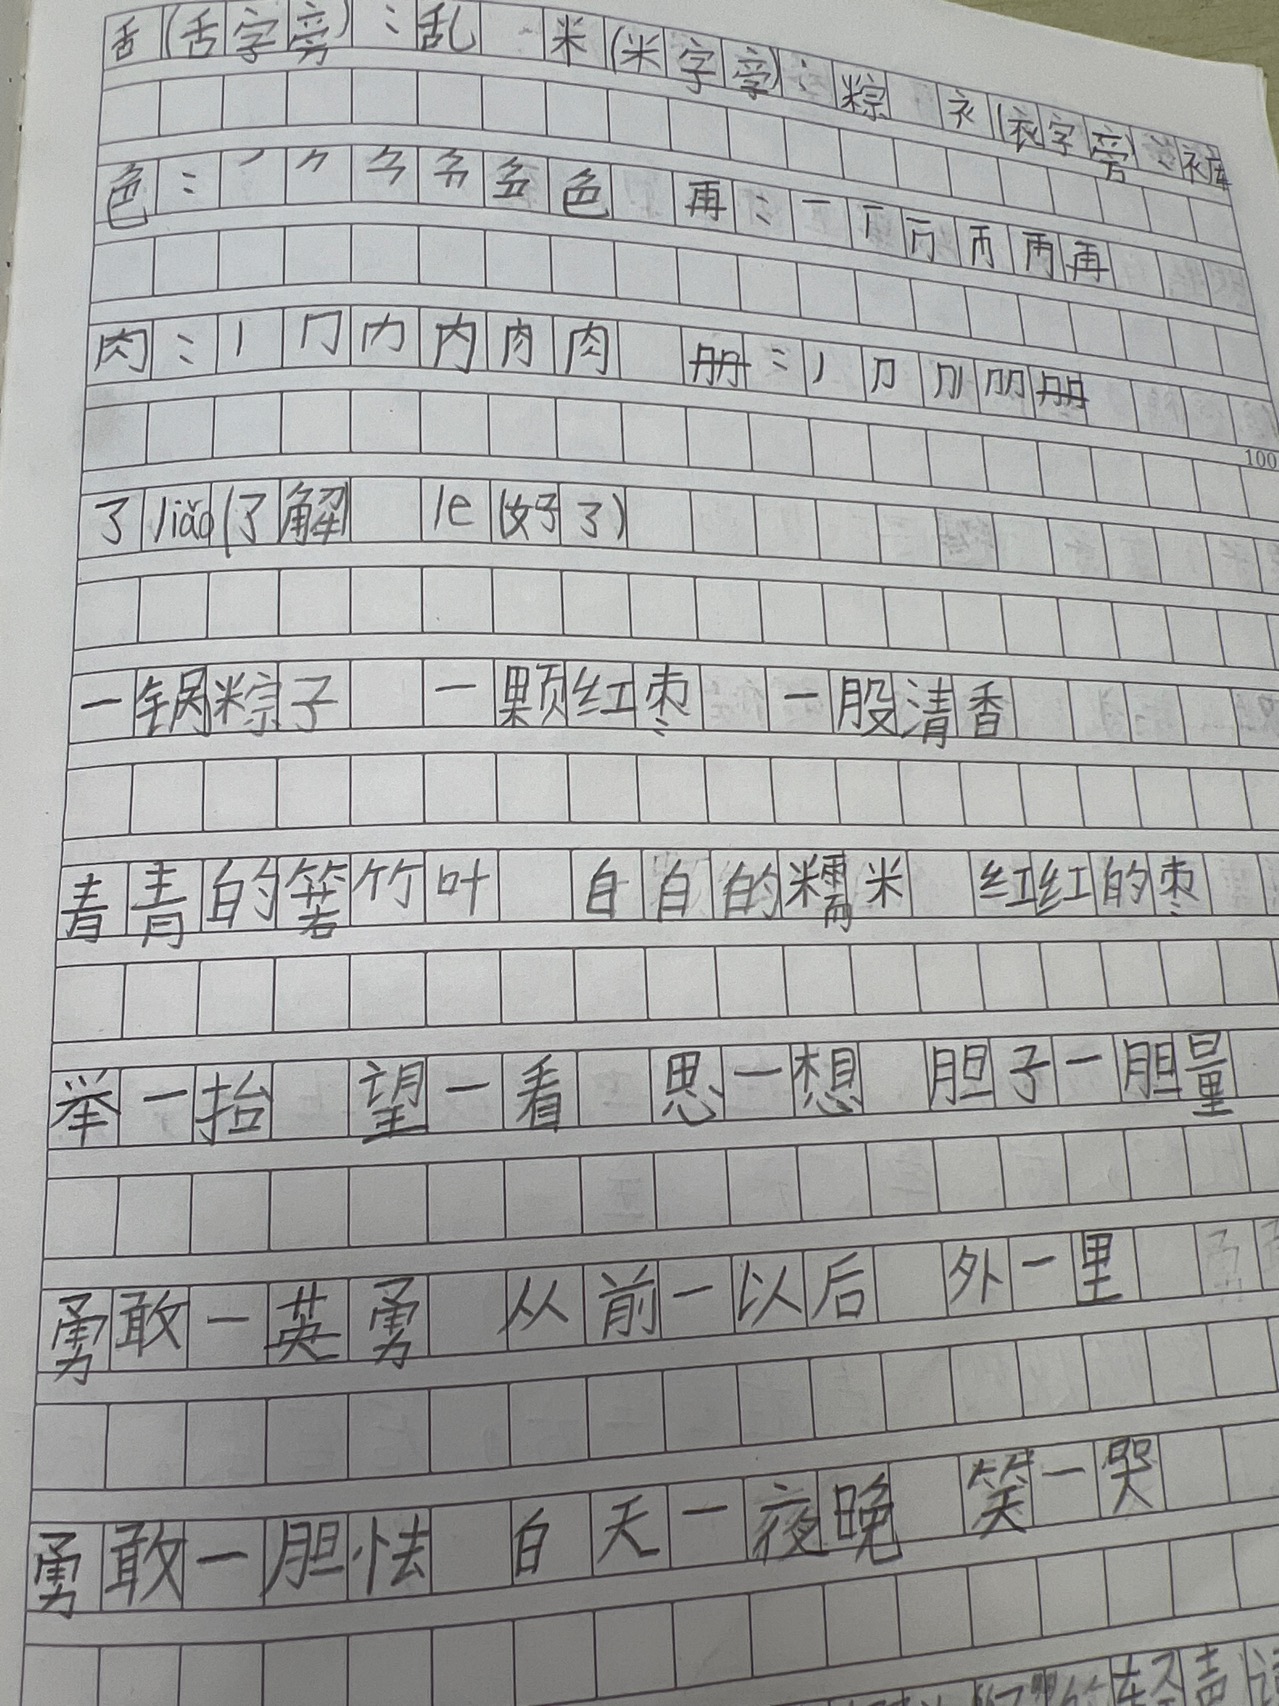 舌(舌字旁):乱 米(米字旁):粽 衤(衣字旁):裤
色:丿 ⺈ 色 再:一 丆 再
肉:丨 冂 内 肉 册:丿 册
了 liǎo(了解 le(好了)
一锅粽子 一颗红枣 一股清香
青青的箬竹叶 白白的糯米 红红的枣
举一抬 望一看 思一想 胆子一胆量
勇敢一英勇 从前一以后 外一里
勇敢一胆怯 白天一夜晚 笑一哭